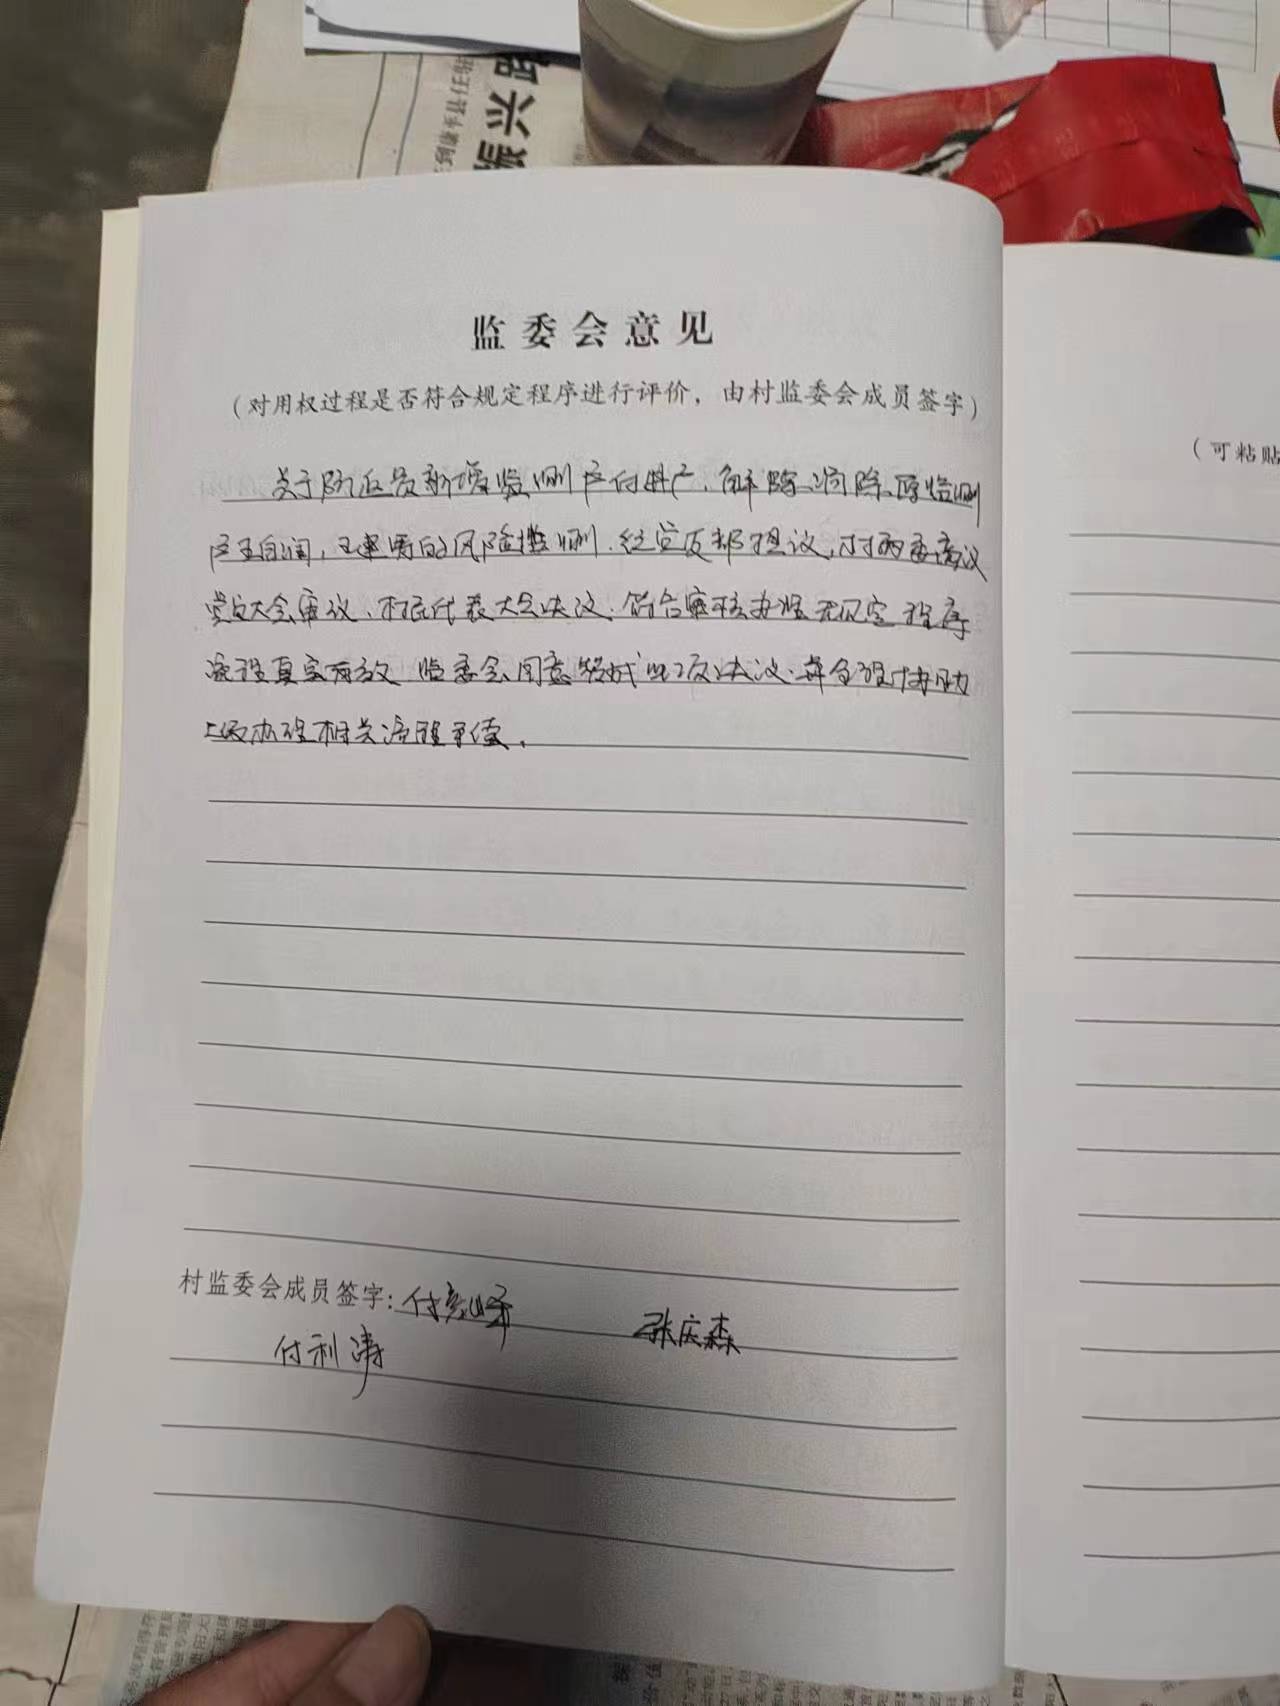 振兴
监委会意见
(对用权过程是否符合规定程序进行评价，由村监委会成员签字)
(可粘贴
关于防返贫新增监测户付胜广，解除、消除、原监测
户王自润，王建勇的风险监测．经党支部提议，村两委商议
党员大会审议、村民代表大会决议．符合审核办监无规定程序
流程真实有效 监委会同意赞成此次决议．并全程协助
上级办理相关流程手续．
村监委会成员签字: 付彦峰 张庆森
付利涛